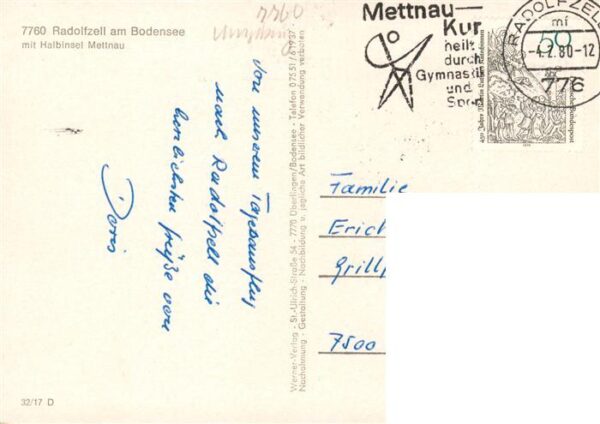 7760 Radolfzell am Bodensee
mit Halbinsel Mettnau
7760
Mettnau—
Kur
heilt
durch
Gymnastik
und
Sport
RADOLFZELL
mi
-4.2.80-12
776
50
Von unserem Tagesausflug
nach Radolfzell die
herzlichsten Grüße von
Doris
Werner-Verlag - St.-Ulrich-Straße 54 - 7770 Überlingen/Bodensee - Telefon 07551/61937
Nachahmung - Gestaltung - Nachbildung u. jegliche Art bildlicher Verwendung verboten
Familie
Erich
Grill
7500
32/17 D